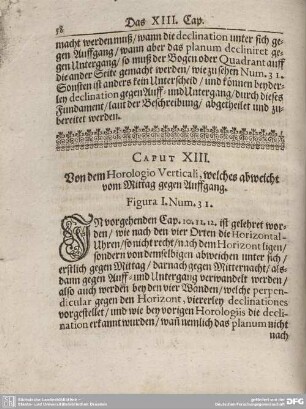 58 Das XIII. Cap.
macht werden muß/ wann die declination unter sich ge-
gen Auffgang/ wann aber das planum decliniret ge-
gen Untergang/ so muß der Bogen oder Quadrant auff
die ander Seite gemacht werden/ wie zu sehen Num. 31.
Sonsten ist anders kein Unterscheid / und können beyder-
ley declination gegen Auff- und Untergang/ durch dieses
Fundament/ laut der Beschreibung/ abgetheilet und zu-
bereitet werden.
CAPUT XIII.
Von dem Horologio Verticali, welches abweicht
vom Mittag gegen Auffgang.
Figura I. Num. 31.
IN vorgehenden Cap. 10. 11. 12. ist gelehret wor-
den/ wie nach den vier Orten die Horizontal-
Uhren/ so nicht recht/ nach dem Horizont ligen/
sondern von demselbigen abweichen unter sich /
erstlich gegen Mittag/ darnach gegen Mitternacht/ als-
dann gegen Auff- und Untergang verwandelt werden /
also auch werden bey den vier Wänden/ welche perpen-
dicular gegen den Horizont, viererley declinationes
vorgestellet / und wie bey vorigen Horologiis die decli-
nation erkannt wurden/ wañ nemlich das planum nicht
nach